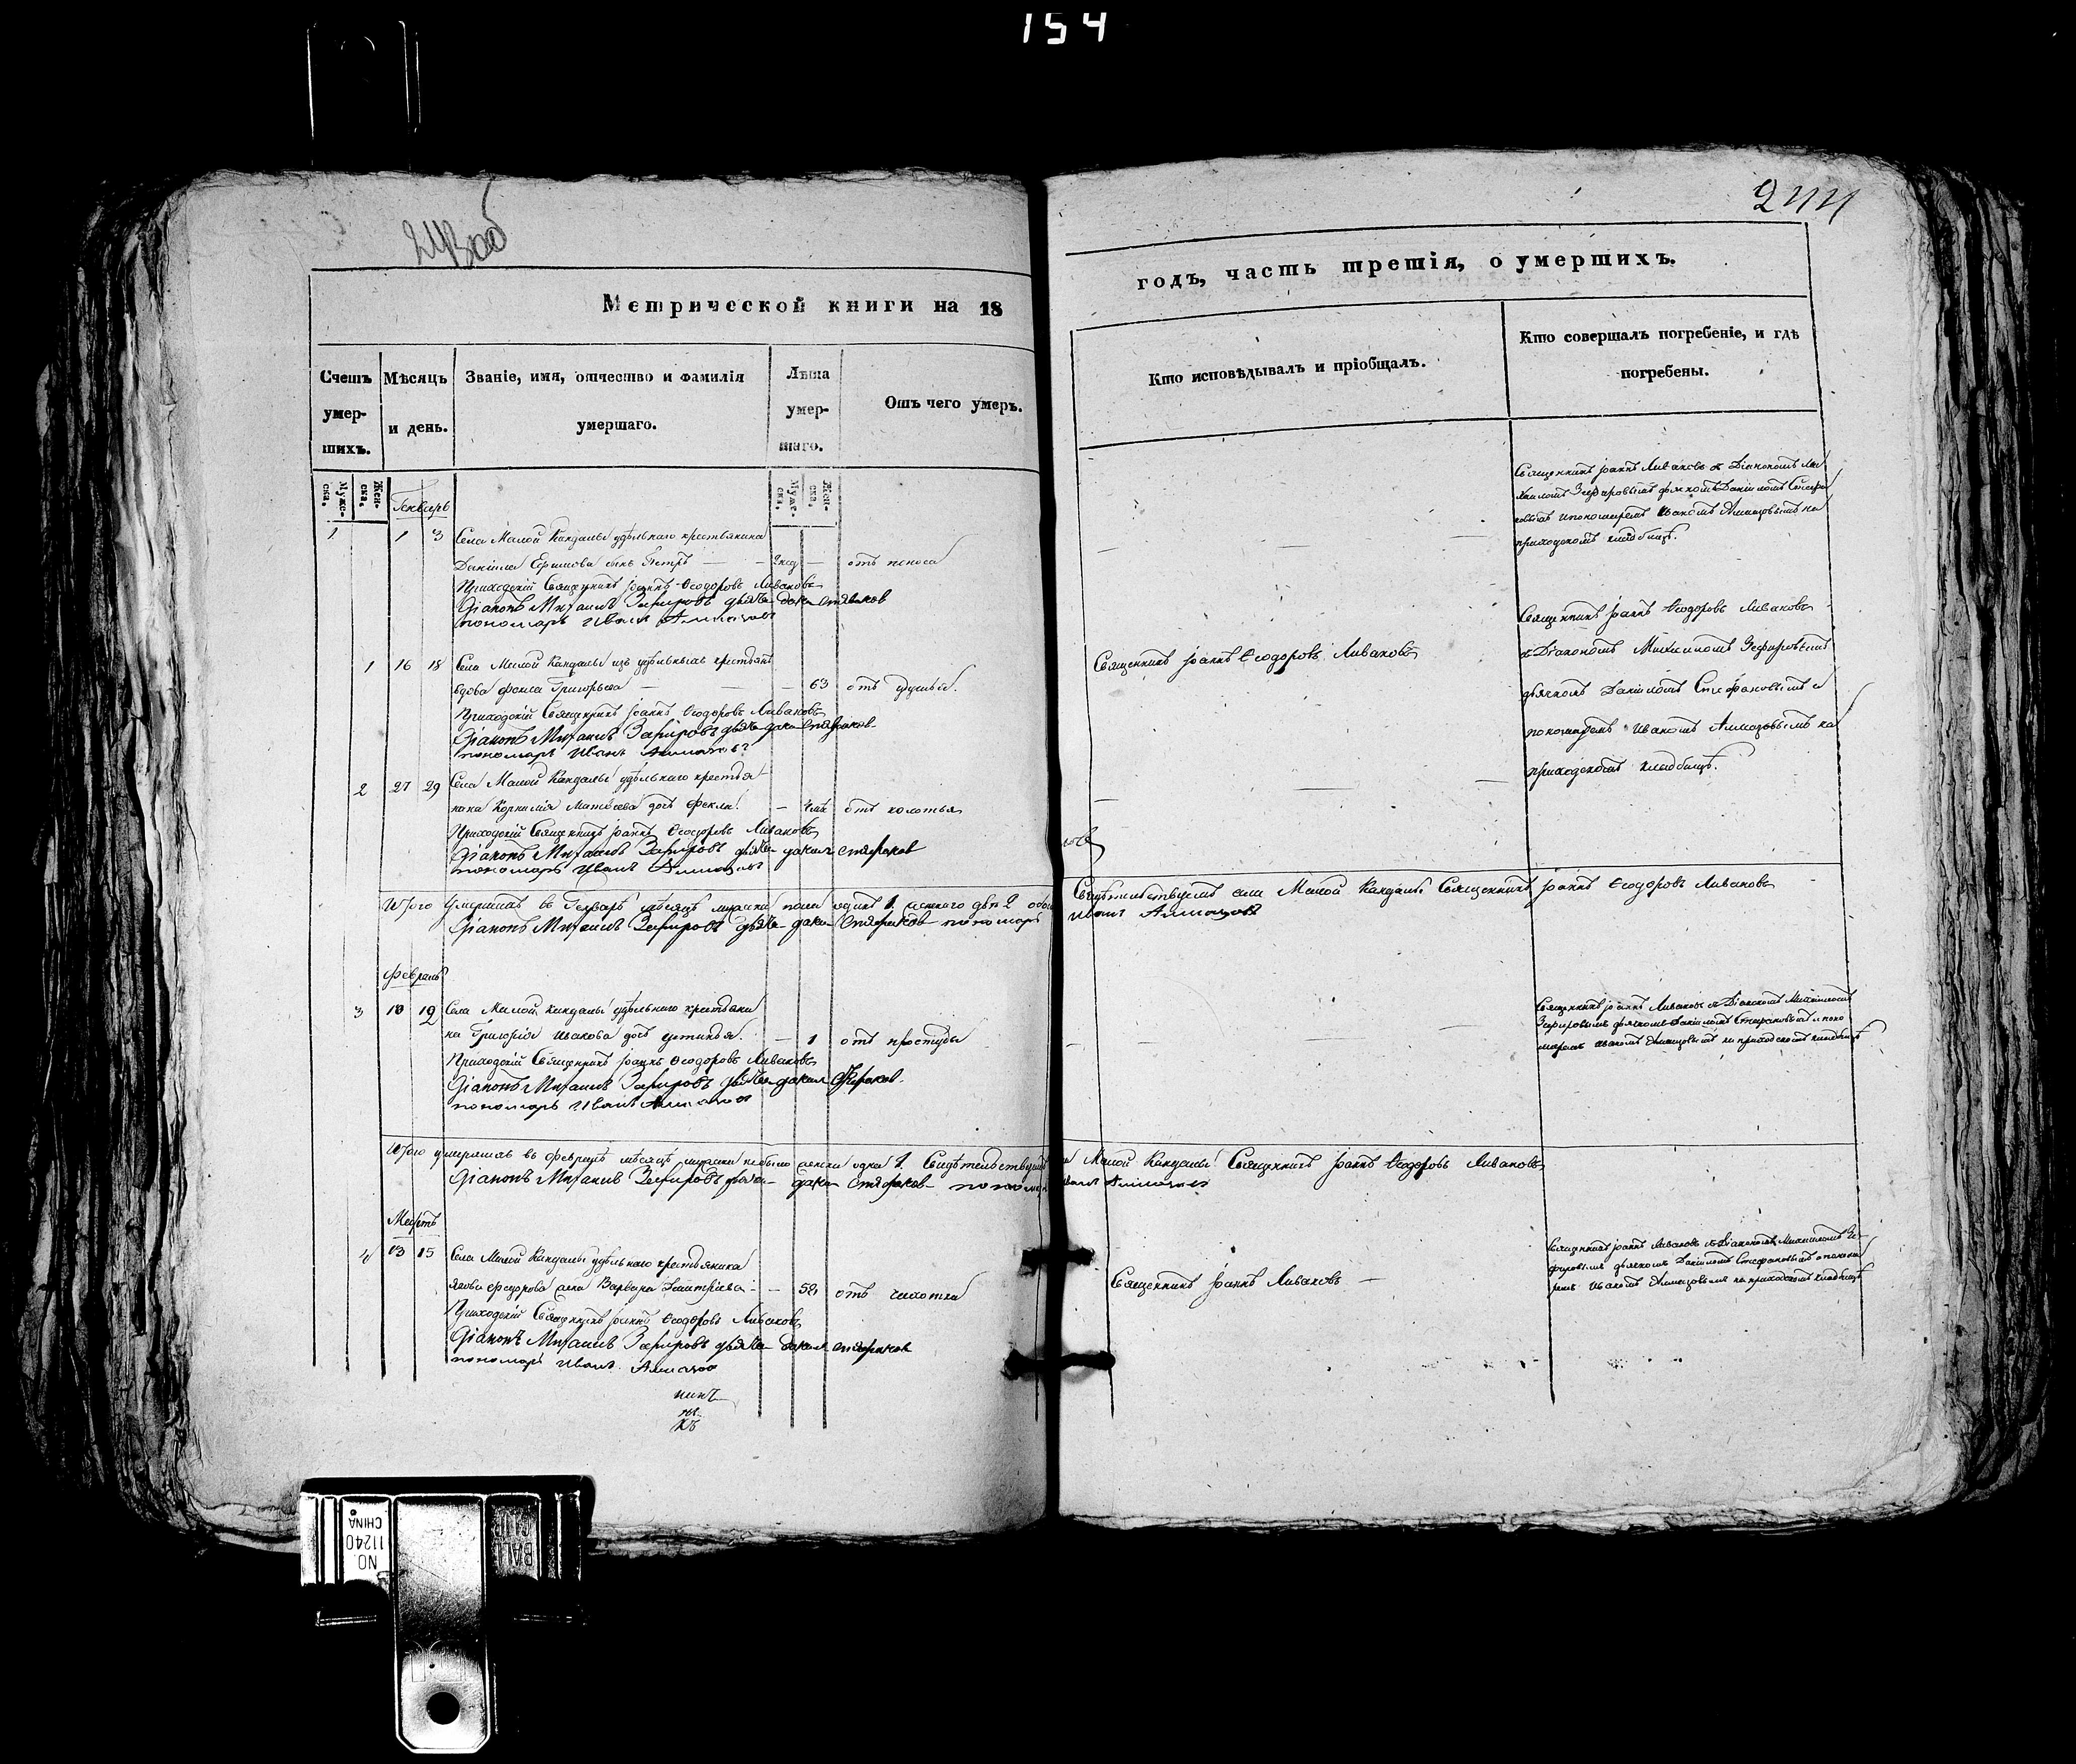 154
243 об
244
Метрической книги на 18
годъ, часть третія, о умершихъ.
Счетъ умер-шихъ.
Мѣсяцъ и день.
Званіе, имя, отчество и фамилія умершаго.
Лѣта умер-шаго.
Отъ чего умеръ.
Кто исповѣдывалъ и пріобщалъ.
Кто совершалъ погребеніе, и гдѣ погребены.
Муже-ска.
Жен-ска.
Муже-ска.
Жен-ска.
Генварь
1 1 3 Села Малой Кандалы удѣльнаго крестьянина
Даніила Ефимова сынъ Петръ — — 2 нед — отъ поноса
Приходскій Священникъ Іоаннъ Ѳеодоровъ Ливановъ
Діаконъ Михаилъ Зефировъ дьячекъ Данил Стефанов
пономарь Иванъ Алмазов
Священникъ Іоаннъ Ливановъ съ Діакономъ Ми
хаиломъ Зефировымъ дьячкомъ Даніиломъ Стефа
новымъ и пономаремъ Иваномъ Алмазовымъ на
приходскомъ кладбищѣ.
1 16 18 Села Малой Кандалы изъ удѣльныхъ крестьянъ
вдова Фекла Григорьева — — — 63 отъ удушья.
Приходскій Священникъ Іоаннъ Ѳеодоровъ Ливановъ
Діаконъ Михаилъ Зефировъ дьячекъ Данил Стефанов
пономарь Иванъ Алмазовъ
Священникъ Іоаннъ Ѳеодоровъ Ливановъ
Священникъ Іоаннъ Ѳеодоровъ Ливановъ
съ Діакономъ Михаиломъ Зефировымъ
дьячкомъ Даніиломъ Стефановымъ и
пономаремъ Иваномъ Алмазовымъ на
приходскомъ кладбищѣ.
2 27 29 Села Малой Кандалы удѣльнаго крестья
нина Корнилія Матвѣева дочь Фекла — отъ колотья
Приходскій Священникъ Іоаннъ Ѳеодоровъ Ливановъ
Діаконъ Михаилъ Зефировъ дьячекъ Данил Стефанов
пономарь Иванъ Алмазовъ
Итого умершихъ въ Генварѣ мѣсяцѣ мужска пола одинъ 1. женскаго двѣ 2 Свидѣтельствуемъ села Малой Кандалы Священникъ Іоаннъ Ѳеодоровъ Ливановъ
Діаконъ Михаилъ Зефировъ дьячекъ Данил Стефанов пономарь Иванъ Алмазовъ
Февраль
3 10 12 Села Малой Кандалы удѣльнаго крестьяни
на Григорія Иванова дочь Устинья. — 1 отъ простуды
Приходскій Священникъ Іоаннъ Ѳеодоровъ Ливановъ
Діаконъ Михаилъ Зефировъ дьячекъ Данил Стефанов.
пономарь Иванъ Алмазов
Священникъ Іоаннъ Ливановъ съ Діакономъ Михаиломъ
Зефировымъ дьячкомъ Даніиломъ Стефановымъ и поно
маремъ Иваномъ Алмазовымъ на приходскомъ кладбищѣ
Итого умершихъ въ Февралѣ мѣсяцѣ мужска небыло женска одна 1. Свидѣтельствуемъ Малой Кандалы Священникъ Іоаннъ Ѳеодоровъ Ливановъ
Діаконъ Михаилъ Зефировъ дьячек Данил Стефанов пономарь Иванъ Алмазовъ
Мартъ
4 13 15 Села Малой Кандалы удѣльнаго крестьянина
Якова Федорова жена Варвара Дмитріева — — 52 отъ чахотки
Приходскій Священникъ Іоаннъ Ѳеодоровъ Ливановъ
Діаконъ Михаилъ Зефировъ дьячекъ Данил Стефанов
пономарь Иванъ Алмазов
Священникъ Іоаннъ Ливановъ —
Священникъ Іоаннъ Ливановъ съ Діакономъ Михаиломъ Зе-
фировымъ дьячкомъ Даніиломъ Стефановымъ и понома
ремъ Иваномъ Алмазовымъ на приходскомъ кладбищѣ
NO. 11240
CHINA